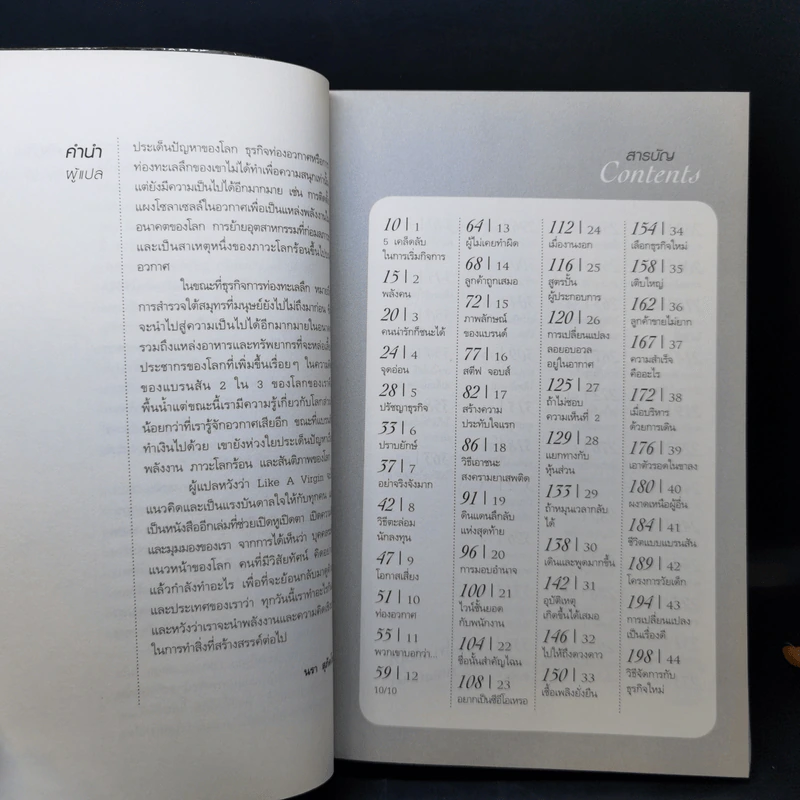 คำนำ
ผู้แปล
ประเด็นปัญหาของโลก ธุรกิจท่องอวกาศหรือการ
ท่องทะเลลึกของเขาไม่ได้ทำเพื่อความสนุกเท่านั้น
แต่ยังมีความเป็นไปได้อีกมากมาย เช่น การติดตั้ง
แผงโซลาเซลล์ในอวกาศเพื่อเป็นแหล่งพลังงาน
อนาคตของโลก การย้ายอุตสาหกรรมที่ก่อมลภาวะ
และเป็นสาเหตุหนึ่งของภาวะโลกร้อนขึ้นไปบน
อวกาศ
ในขณะที่ธุรกิจการท่องทะเลลึก หมายถึง
การสำรวจใต้สมุทรที่มนุษย์ยังไปไม่ถึงมาก่อน
จะนำไปสู่ความเป็นไปได้อีกมากมายในอนาคต
รวมถึงแหล่งอาหารและทรัพยากรที่จะหล่อเลี้ยง
ประชากรของโลกที่เพิ่มขึ้นเรื่อยๆ ในความ
ของแบรนสัน 2 ใน 3 ของโลกของเรา
พื้นน้ำแต่ขณะนี้เรามีความรู้เกี่ยวกับโลก
น้อยกว่าที่เรารู้จักอวกาศเสียอีก ขณะที่แบรนสัน
ทำเงินไปด้วย เขายังห่วงใยประเด็นปัญหา
พลังงาน ภาวะโลกร้อน และสันติภาพของโลก
ผู้แปลหวังว่า Like A Virgin
แนวคิดและเป็นแรงบันดาลใจให้กับทุกคน
เป็นหนังสืออีกเล่มที่ช่วยเปิดหูเปิดตา เปิด
และมุมมองของเรา จากการได้เห็นว่า บุคคล
แนวหน้าของโลก คนที่มีวิสัยทัศน์ คิด
แล้วกำลังทำอะไร เพื่อที่จะย้อนกลับมาดู
และประเทศของเราว่า ทุกวันนี้เราทำอะไร
และหวังว่าเราจะนำพลังงานและความคิด
ในการทำสิ่งที่สร้างสรรค์ต่อไป
นรา
สารบัญ
Contents
10 | 1
5 เคล็ดลับ
ในการเริ่มกิจการ
15 | 2
พลังคน
20 | 3
คนน่ารักก็ชนะได้
24 | 4
จุดอ่อน
28 | 5
ปรัชญาธุรกิจ
33 | 6
ปราบยักษ์
37 | 7
อย่าจริงจังมาก
42 | 8
วิธีตะล่อม
นักลงทุน
47 | 9
โอกาสเสี่ยง
51 | 10
ท่องอวกาศ
55 | 11
พวกเขาบอกว่า...
59 | 12
10/10
64 | 13
ผู้ไม่เคยทำผิด
68 | 14
ลูกค้าถูกเสมอ
72 | 15
ภาพลักษณ์
ของแบรนด์
77 | 16
สตีฟ จอบส์
82 | 17
สร้างความ
ประทับใจแรก
86 | 18
วิธีเอาชนะ
สงครามยาเสพติด
91 | 19
ดินแดนลึกลับ
แห่งสุดท้าย
96 | 20
การมอบอำนาจ
100 | 21
ไวน์ชั้นยอด
กับพนักงาน
104 | 22
ชื่อนั้นสำคัญไฉน
108 | 23
อยากเป็นซีอีโอเหรอ
112 | 24
เมื่องานงอก
116 | 25
สูตรปั้น
ผู้ประกอบการ
120 | 26
การเปลี่ยนแปลง
ลอยอบอวล
อยู่ในอากาศ
125 | 27
ถ้าไม่ชอบ
ความเห็นที่ 2
129 | 28
แยกทางกับ
หุ้นส่วน
133 | 29
ถ้าหมุนเวลากลับ
ได้
138 | 30
เดินและพูดมากขึ้น
142 | 31
อุบัติเหตุ
เกิดขึ้นได้เสมอ
146 | 32
ไปให้ถึงดวงดาว
150 | 33
เชื้อเพลิงยั่งยืน
154 | 34
เลือกธุรกิจใหม่
158 | 35
เติบใหญ่
162 | 36
ลูกค้าขายไม่ยาก
167 | 37
ความสำเร็จ
คืออะไร
172 | 38
เมื่อบริหาร
ด้วยการเดิน
176 | 39
เอาตัวรอดในขาลง
180 | 40
ผงาดเหนือผู้อื่น
184 | 41
ชีวิตแบบแบรนสัน
189 | 42
โครงการวัยเด็ก
194 | 43
การเปลี่ยนแปลง
เป็นเรื่องดี
198 | 44
วิธีจัดการกับ
ธุรกิจใหม่